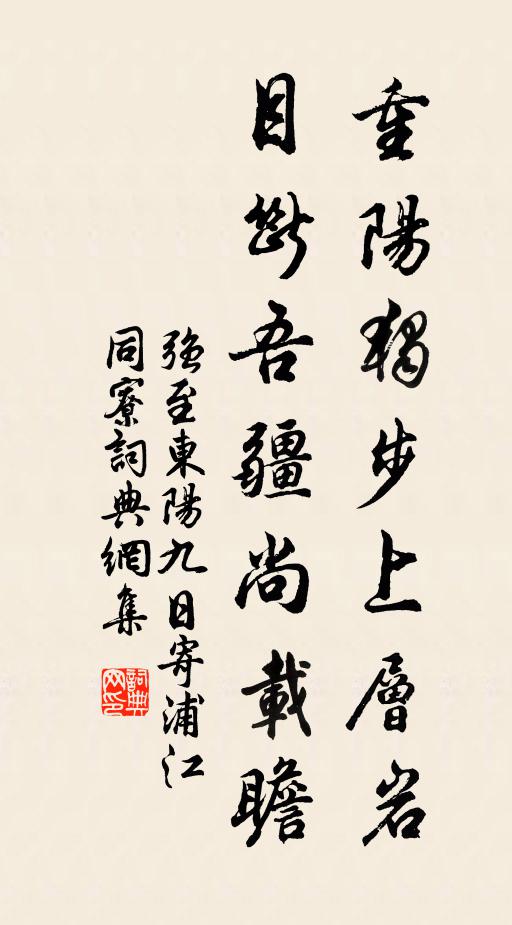 重陽獨步上層岩
目斷吾疆尚載瞻
強至東陽九日寄浦江
同寮詞典網集
詞典
网印